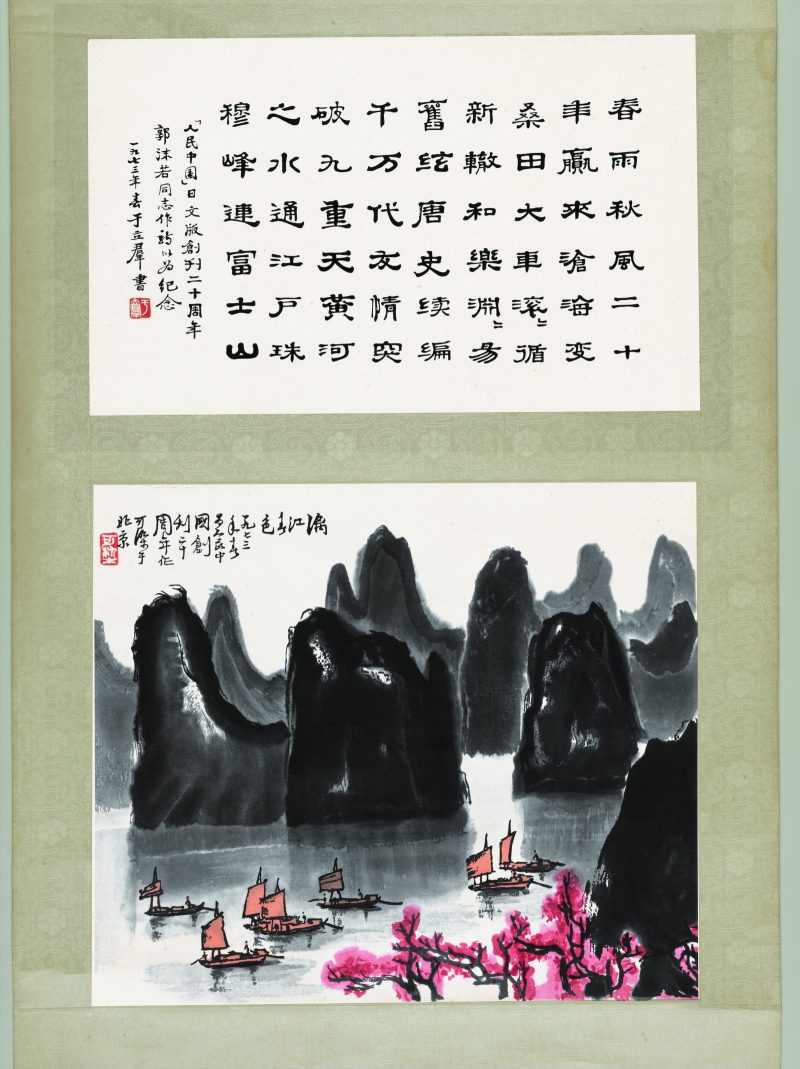 春雨秋風二十
年贏來滄海变
桑田大車滚〻循
新轍和樂淵〻易
舊絃唐史续编
千万代友情突
破九重天黄河
之水通江户珠
穆峰連富士山
「人民中国」日文版創刊二十周年
郭沫若同志作詩以为纪念
一九七三年春于立羣書
漓江春色
一九七三
年春
為人民中
國創
刊二十
周年作
可染于
北京